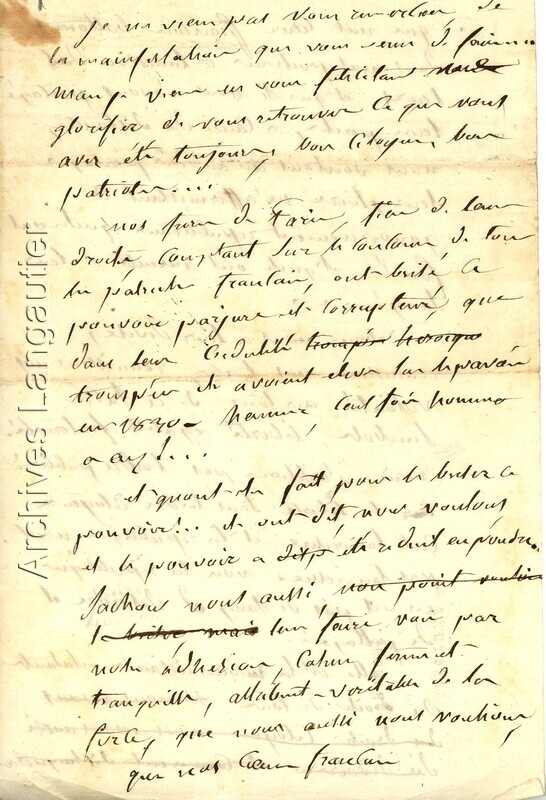 je ne viens pas vous remercier de
la manifestation que vous venez de faire
mais je viens en vous felicitant
glorifier de vous retrouver ce que vous
avez été toujours, bon citoyen, bon
patriote....
nos frères de Paris, fier de leurs
droits comptant sur le concours de tous
les patriotes francais, ont brisé, ce
pouvoir parjure et corrupteur, que
dans leur credulité trompée
trompée ils avoient élevé sur le pavois
en 1830 - honneur, cent fois honneur
a eux!...
et quont ils fait pour le briser ce
pouvoir!.. ils ont dit, nous voulons
et le pouvoir a été reduit en poudre.
Sachons nous aussi, non point vouloir
leur faire voir par
notre adhesion, calme ferme et
tranquille, attribut veritable de la
force, que nous aussi nous voulions,
que nos cœurs francais
Archives Langautier